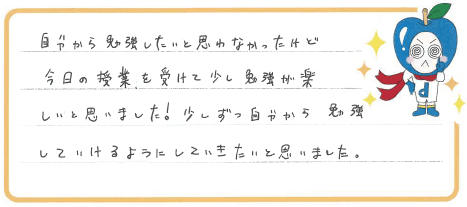 自分から勉強したいと思わなかったけど
今日の授業を受けて少し勉強が楽
しいと思いました!少しずつ自分から勉強
していけるようにしていきたいと思いました。
d